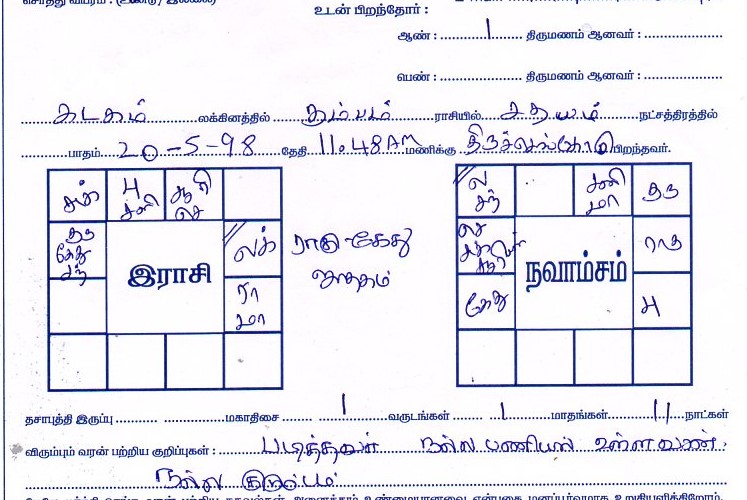 சொத்து விபரம் : (உண்டு / இல்லை)
உடன் பிறந்தோர் :
ஆண் : 1 திருமணம் ஆனவர் :
பெண் : திருமணம் ஆனவர் :
கடகம் லக்கினத்தில் கும்பம் ராசியில் சதயம் நட்சத்திரத்தில்
பாதம் 20-5-98 தேதி 11.48 AM மணிக்கு திருச்செங்கோடு பிறந்தவர்.
பு சனி சூரி செ
குரு கேது சந்
லக்
ரா மா
இராசி
ராகு கேது
ஜாதகம்
ல சந்
சனி மா
குரு
ராகு
கேது
பு
நவாம்சம்
தசாபுத்தி இருப்பு மகாதிசை 1 வருடங்கள் 1 மாதங்கள் 11 நாட்கள்
விருப்பும் வரன் பற்றிய குறிப்புகள் : படித்தவர் நல்ல பணியில் உள்ளவண்.
நல்ல குடும்பம்